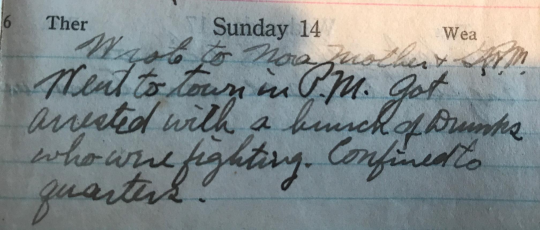 6 Ther Sunday 14 Wea
Wrote to Noa, Mother &
Went to town in P.M. Got
arrested with a bunch of Drunks
who were fighting. Confined to
quarters.